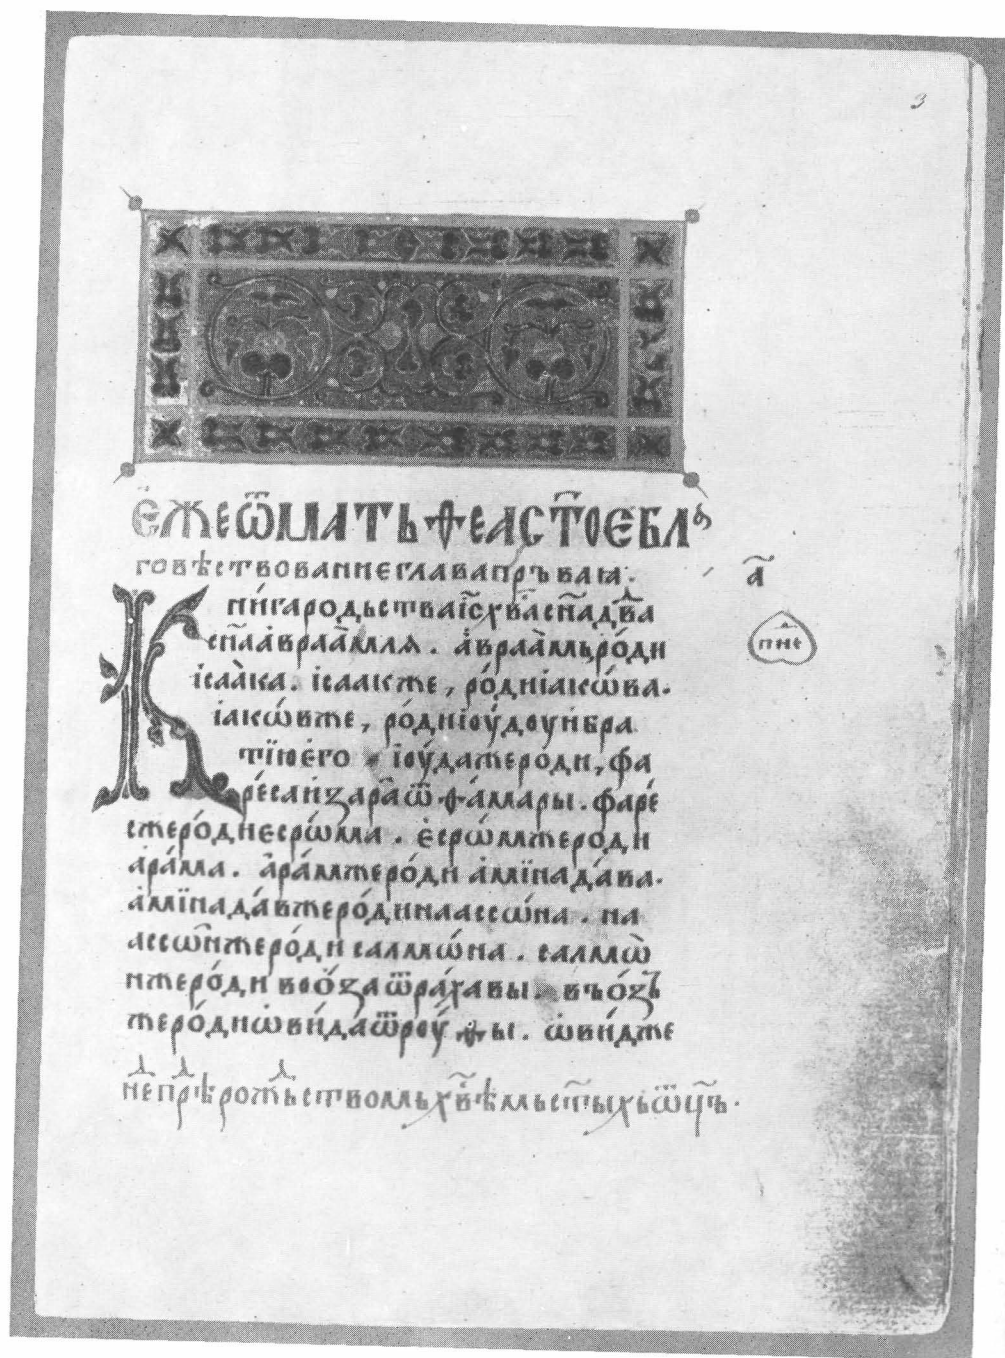 3
Е҆же ѿ маⷮь ѳеа ст҃ое бл҃г
говѣствованиеглавапръваꙗ.
а҃
Книгародьстваі҃сх҃васн҃адв҃а
сн҃аавраамлѧ. авраамьроди
ісаака. ісаакже, родиіакѡва.
іакѡвже, родиіоудоуибра
тїюего іоудажероди, фа
ресаизараѿѳамары. фаре
сжеродиесрѡма. есрѡмжероди
арама. арамжероди амїнадава.
амїнадавжеродинаассѡна. на
ассѡнжероди салмѡна. салмѡ
нжероди воозаѿрахавы. въозъ
жеродиѡвидаѿроуѳы. ѡвидже
неⷣпрⷣѣрожⷣьствомьхв҃ѣмьст҃ыхьѿц҃ъ.